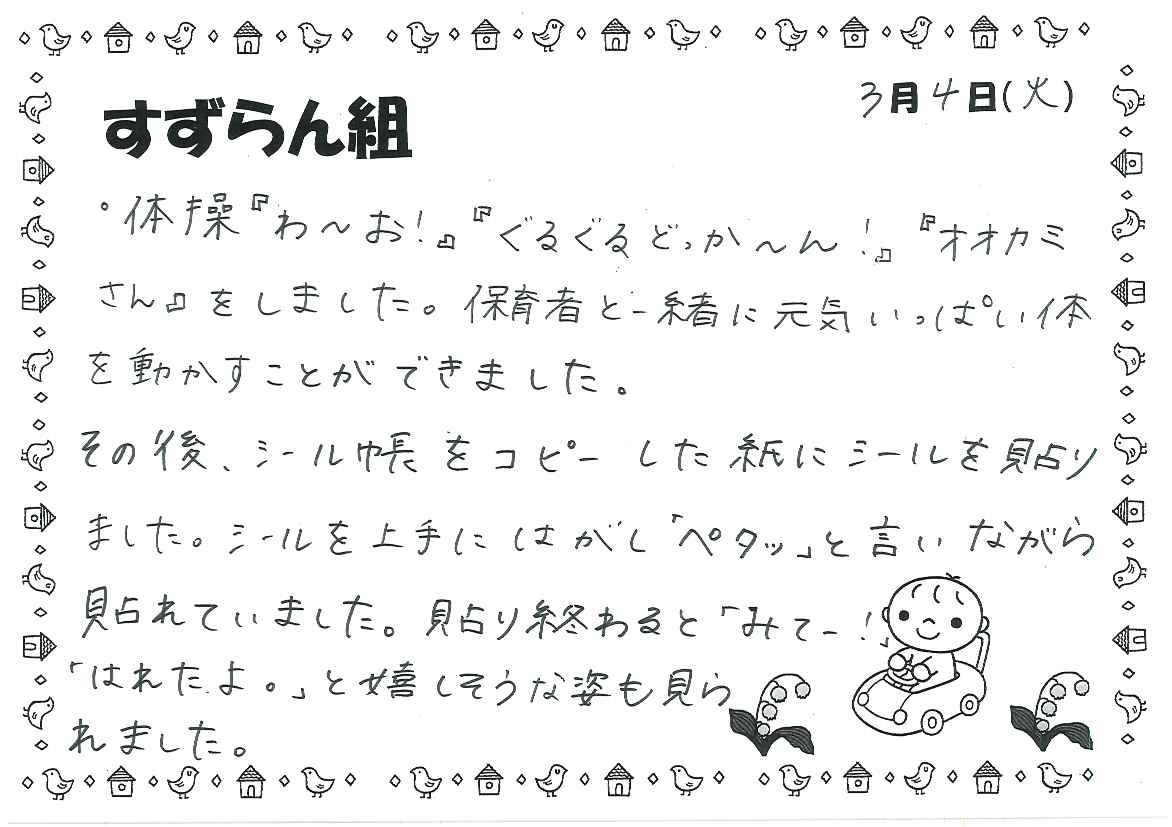 3月4日(火)
すずらん組
・体操『わ～お!』『ぐるぐるどっか～ん!』『オオカミ
さん』をしました。保育者と一緒に元気いっぱい体
を動かすことができました。
その後、シール帳をコピーした紙にシールを貼り
ました。シールを上手にはがし「ペタッ」と言いながら
貼れていました。貼り終わると「みてー!」
「はれたよ。」と嬉しそうな姿も見ら
れました。